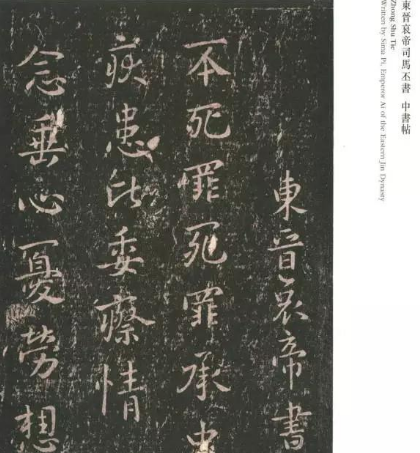 東晉哀帝司馬丕書 中書帖
Zhong Shu Tie
Written by Sima Pi, Emperor Ai of the Eastern Jin Dynasty
東晉哀帝書
丕死罪死罪承中
疾患比委瘵情
念垂心憂勞想